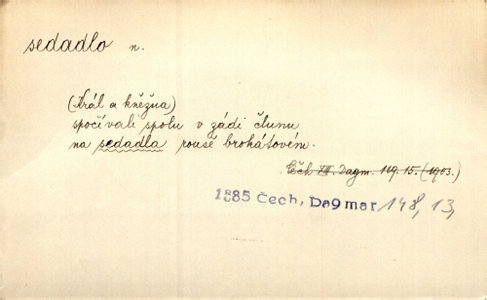 sedadlo n.
(Král a kněžna)
spočívali spolu v zádi člunu
na sedadla rouše brokátovém.
Čch XII. Dagm. 119. 15. (1903.)
1885 Čech, Dagmar 148, 13,